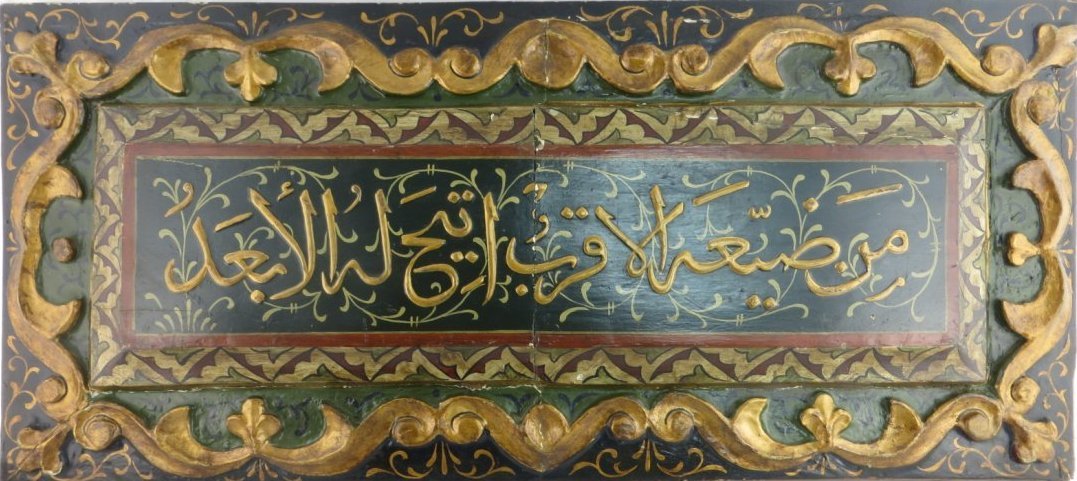 مَن ضَيَّعَهُ الاَقرَبُ اُتِيحَ لَهُ الأَبعَدُ